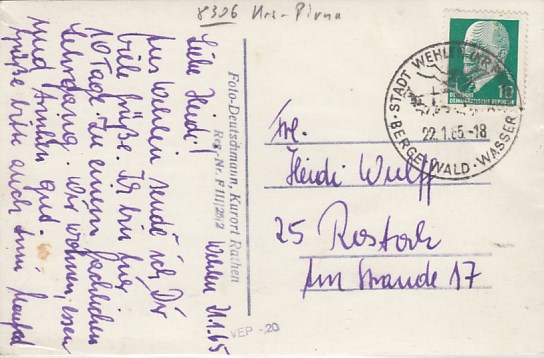 8306 Krs. Pirna
Wehlen 21.1.65
Liebe Heidi!
Aus Wehlen sende ich Dir
viele Grüße. Ich bin für
10 Tage zu einem fachlichen
Lehrgang. Wir wohnen, essen
und arbeiten gut.
Grüße bitte auch
Foto-Deutschmann, Kurort Rathen
Reg.-Nr. F III/25/2
VEP -,20
STADT WEHLEN
BERGE · WALD · WASSER
22.1.65-18
DEUTSCHE
DEMOKRATISCHE REPUBLIK
10
Frl.
Heidi Wulff
25 Rostock
Am Strande 17